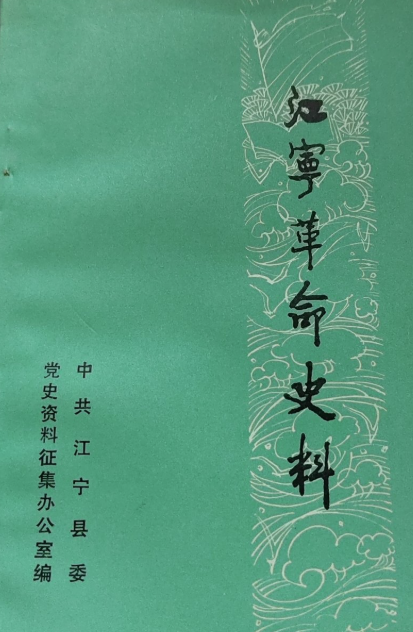 江寧革命史料
中共江宁县委
党史资料征集办公室编